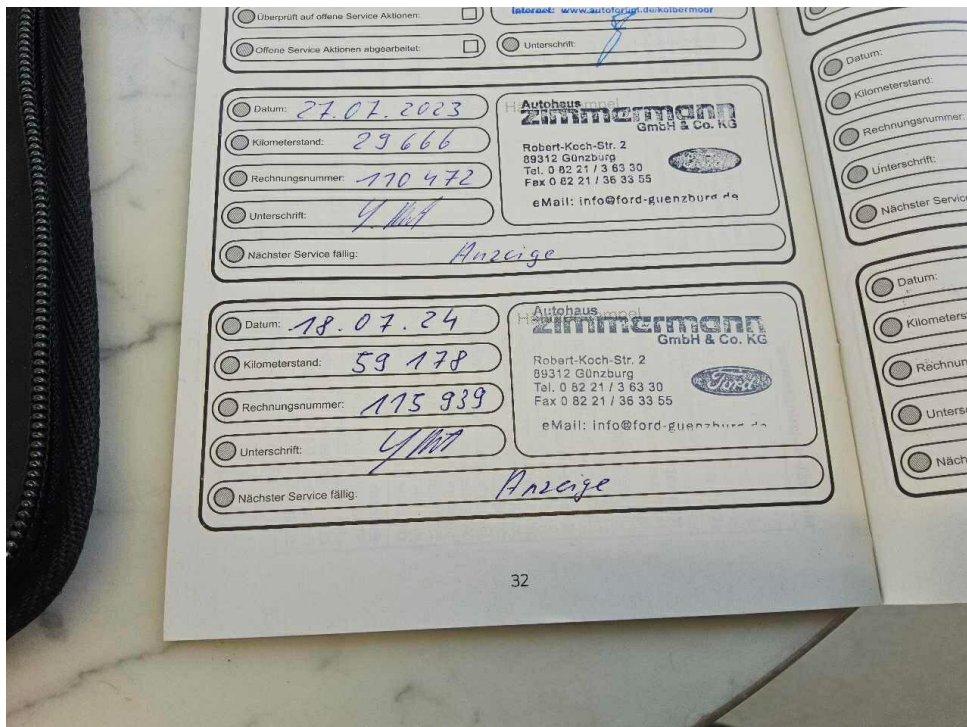 Überprüft auf offene Service Aktionen:
Internet: www.autoforum.de/kolbermoor
Offene Service Aktionen abgearbeitet:
Unterschrift:
Datum: 27.07.2023
Kilometerstand: 29666
Rechnungsnummer: 110 472
Unterschrift:
Nächster Service fällig: Anzeige
Autohaus
Zimmermann
GmbH & Co. KG
Robert-Koch-Str. 2
89312 Günzburg
Tel. 0 82 21 / 3 63 30
Fax 0 82 21 / 36 33 55
eMail: info@ford-guenzburg.de
Datum: 18.07.24
Kilometerstand: 59 178
Rechnungsnummer: 115 939
Unterschrift:
Nächster Service fällig: Anzeige
Autohaus
Zimmermann
GmbH & Co. KG
Robert-Koch-Str. 2
89312 Günzburg
Tel. 0 82 21 / 3 63 30
Fax 0 82 21 / 36 33 55
Ford
eMail: info@ford-guenzburg.de
32
Datum:
Kilometerstand:
Rechnungsnummer:
Unterschrift:
Nächster Service
Datum:
Kilometers
Rechnun
Unters
Näch